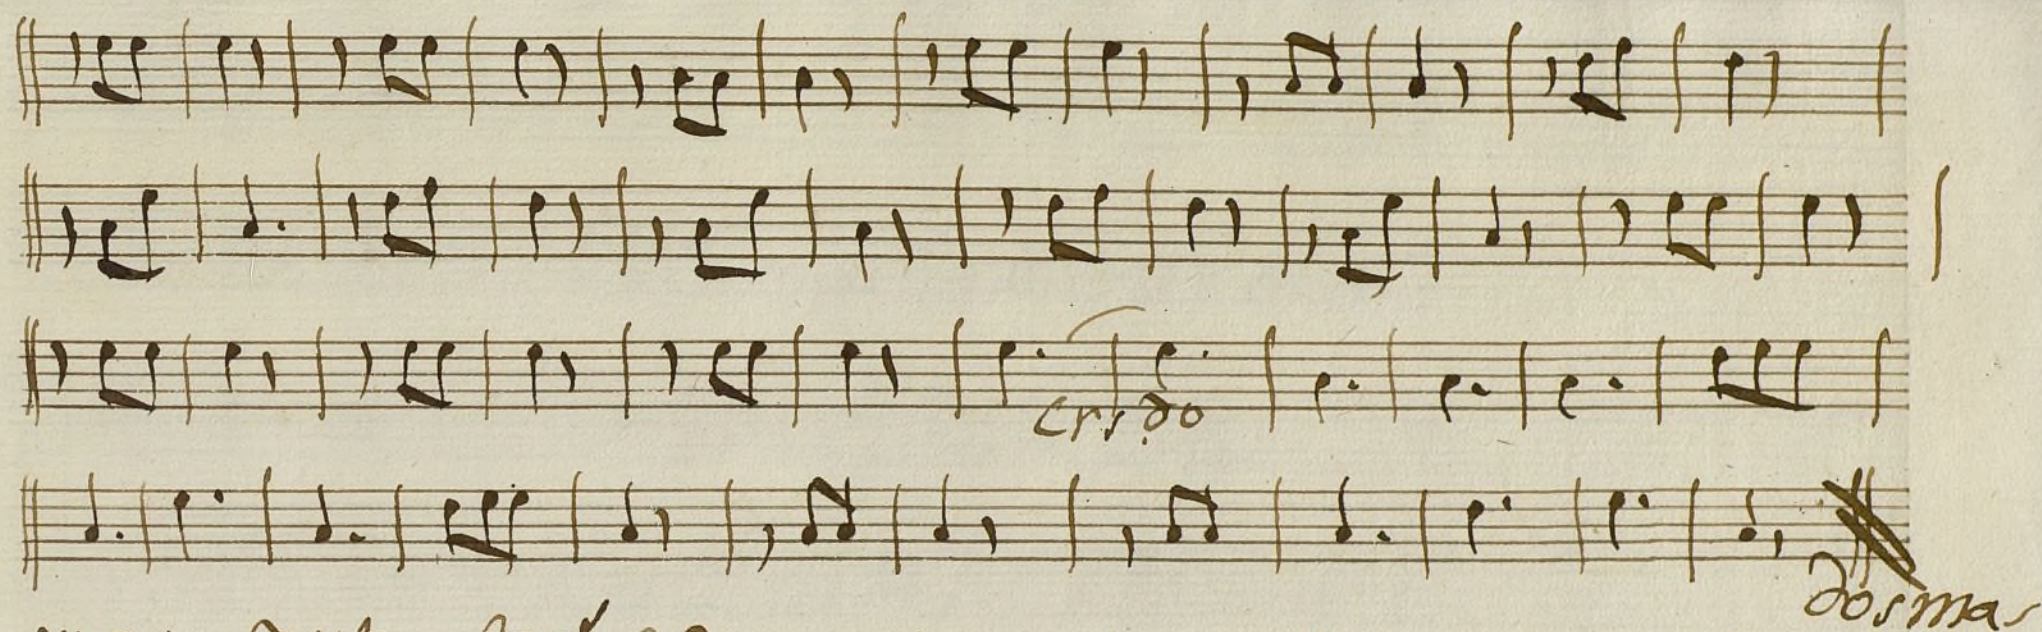 crsdo
dos mas